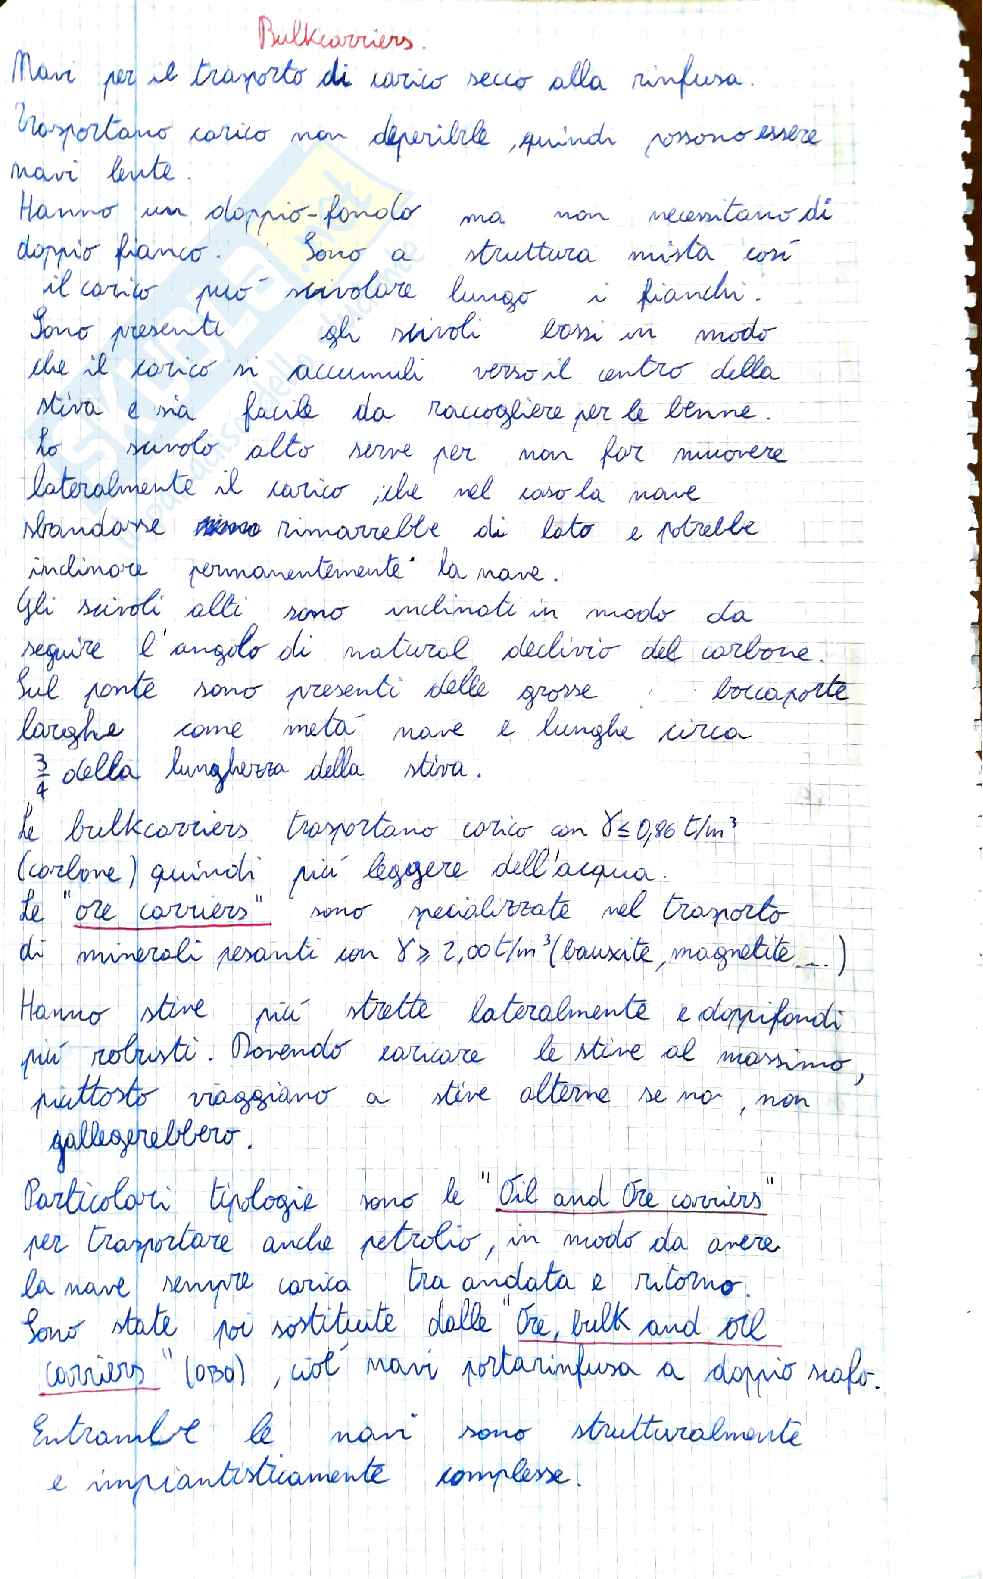 Bulkcarriers.
Navi per il trasporto di carico secco alla rinfusa.
Trasportano carico non deperibile, quindi possono essere
navi lente.
Hanno un doppio-fondo ma non necessitano di
doppio fianco. Sono a struttura mista così
il carico può scivolare lungo i fianchi.
Sono presenti gli scivoli bassi in modo
che il carico si accumuli verso il centro della
stiva e sia facile da raccogliere per le benne.
Lo scivolo alto serve per non far muovere
lateralmente il carico, che nel caso la nave
sbandasse rimarrebbe di lato e potrebbe
inclinare permanentemente la nave.
Gli scivoli alti sono inclinati in modo da
seguire l'angolo di natural declivio del carbone.
Sul ponte sono presenti delle grosse boccaporte
larghe come metà nave e lunghe circa
3/4 della lunghezza della stiva.
Le bulkcarriers trasportano carico con γ ≤ 0,86 t/m³
(carbone) quindi più leggere dell'acqua.
Le "ore carriers" sono specializzate nel trasporto
di minerali pesanti con γ ≥ 2,00 t/m³ (bauxite, magnetite...)
Hanno stive più strette lateralmente e doppifondi
più robusti. Dovendo caricare le stive al massimo,
piuttosto viaggiano a stive alterne se no, non
gallegerebbero.
Particolari tipologie sono le "Oil and Ore carriers"
per trasportare anche petrolio, in modo da avere
la nave sempre carica tra andata e ritorno.
Sono state poi sostituite dalle "Ore, bulk and oil
carriers" (OBO), cioè navi portarinfusa a doppio scafo.
Entrambe le navi sono strutturalmente
e impiantisticamente complesse.